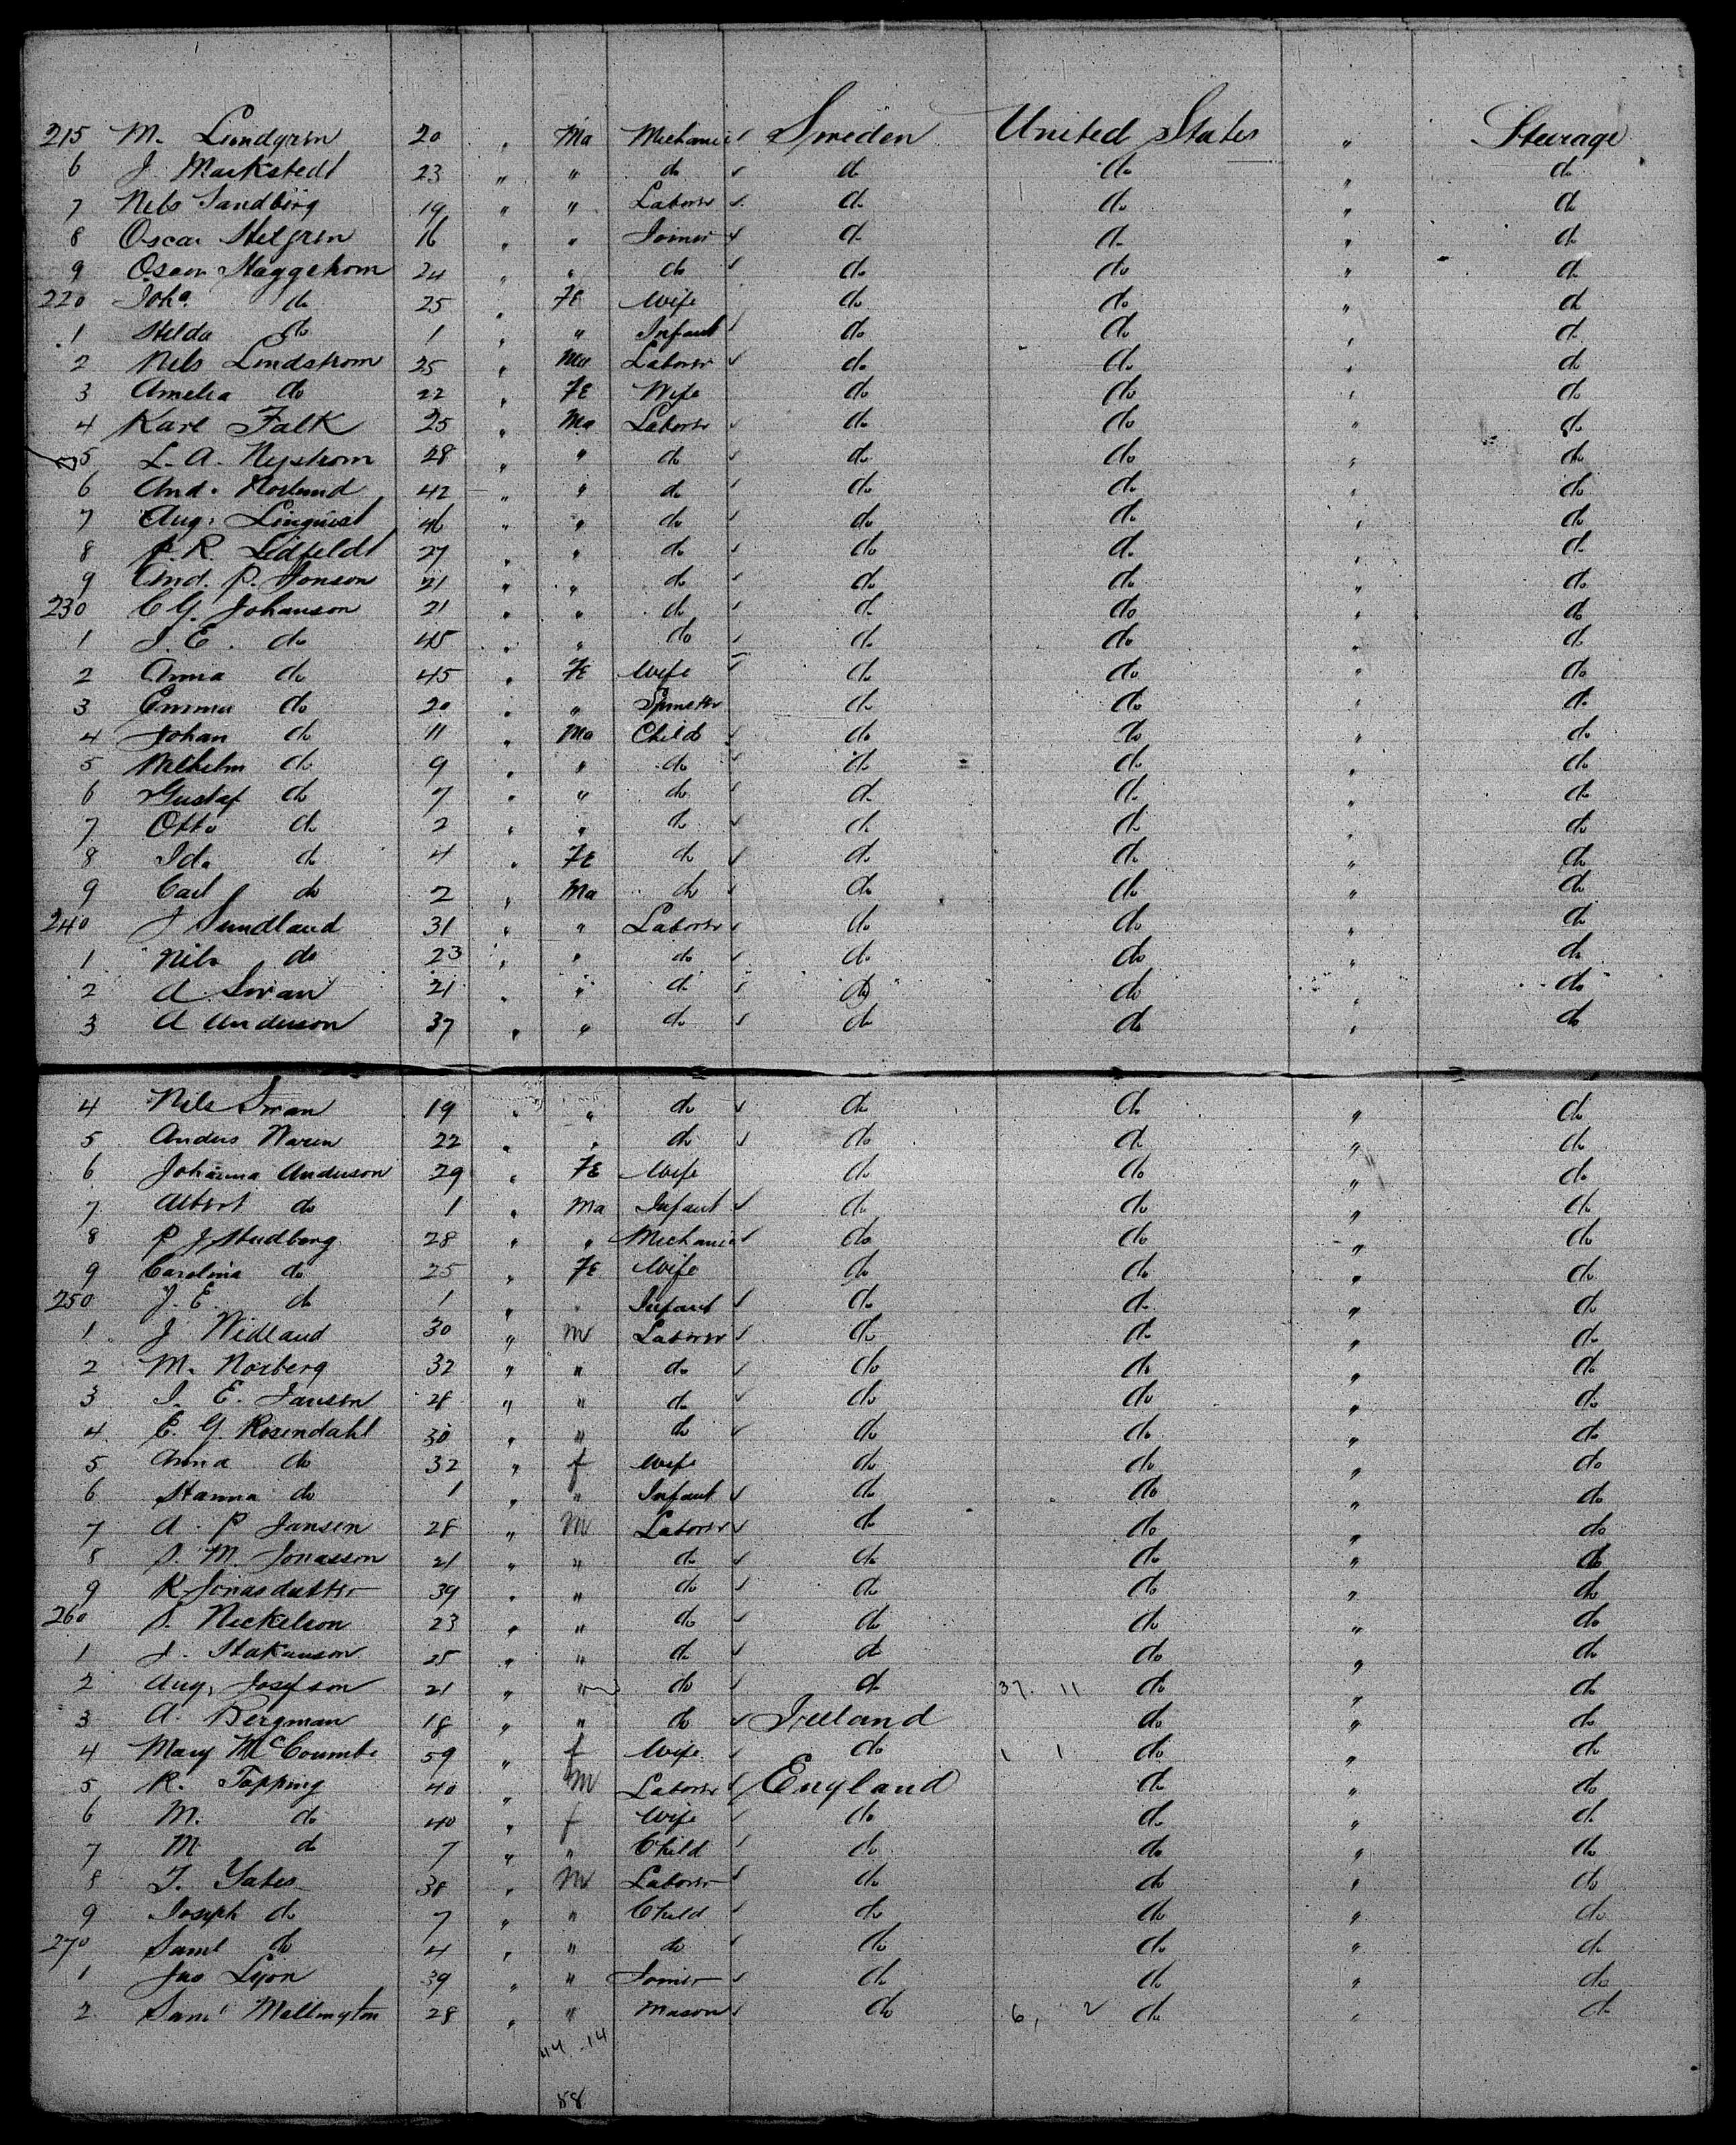 215 M. Lundgren 20 " Ma Mechanic ✓ Sweden United States " Steerage
6 J. Markstedt 23 " " do ✓ do do " do
7 Nels Sandberg 19 " " Laborer ✓ do do " do
8 Oscar Helgren 16 " " Joiner ✓ do do " do
9 Oscar Haggstrom 24 " " do ✓ do do " do
220 Joha do 25 " Fe Wife do do " do
1 Hilda do 1 " " Infant ✓ do do " do
2 Nels Lindstrom 25 " Ma Laborer ✓ do do " do
3 Amelia do 22 " Fe Wife do do " do
4 Karl Falk 25 " Ma Laborer ✓ do do " do
5 L. A. Nystrom 28 " " do ✓ do do " do
6 And. Norlund 42 " " do ✓ do do " do
7 Aug. Linquist 46 " " do ✓ do do " do
8 P. R. Lidfeldt 27 " " do ✓ do do " do
9 And. P. Jonson 21 " " do ✓ do do " do
230 C G. Johanson 21 " " do ✓ do do " do
1 J. E. do 45 " " do ✓ do do " do
2 Anna do 45 " Fe Wife ✓ do do " do
3 Emma do 20 " " Spinster do do " do
4 Johan do 11 " Ma Child ✓ do do " do
5 Wilhelm do 9 " " do ✓ do do " do
6 Gustaf do 7 " " do ✓ do do " do
7 Otto do 2 " " do ✓ do do " do
8 Ida do 4 " Fe do ✓ do do " do
9 Carl do 2 " Ma do ✓ do do " do
240 J Sundland 31 " " Laborer ✓ do do " do
1 Nils do 23 " " do ✓ do do " do
2 A. Swan 21 " " do ✓ do do " do
3 A Anderson 37 " " do ✓ do do " do
4 Nils Swan 19 " " do ✓ do do " do
5 Anders Waren 22 " " do ✓ do do " do
6 Johanna Anderson 29 " Fe Wife do do " do
7 Albert do 1 " Ma Infant ✓ do do " do
8 P J Hedberg 28 " " Mechanic ✓ do do " do
9 Carolina do 25 " Fe Wife do do " do
250 J. E. do 1 " " Infant ✓ do do " do
1 J Widland 30 " M Laborer ✓ do do " do
2 M. Norberg 32 " " do ✓ do do " do
3 J. E. Jansen 28 " " do ✓ do do " do
4 E. G. Rosendahl 30 " " do ✓ do do " do
5 Anna do 32 " f Wife do do " do
6 Hanna do 1 " " Infant ✓ do do " do
7 A. P Jansen 28 " M Laborer ✓ do do " do
8 S. M. Jonasson 21 " " do ✓ do do " do
9 K Jonasdatter 39 " " do ✓ do do " do
260 S. Nickelson 23 " " do ✓ do do " do
1 J. Hakanson 25 " " do ✓ do do " do
2 Aug. Josefson 21 " " do ✓ do 37. 11 do " do
3 A. Bergman 18 " " do ✓ Ireland do " do
4 Mary McCoumbe 59 " f Wife ✓ do 1 1 do " do
5 R. Topping 40 " M Laborer ✓ England do " do
6 M. do 40 " f Wife ✓ do do " do
7 M do 7 " " Child ✓ do do " do
8 T. Yates 38 " M Laborer ✓ do do " do
9 Joseph do 7 " " Child ✓ do do " do
270 Saml do 4 " " do ✓ do do " do
1 Jas Lyon 39 " " Joiner ✓ do do " do
2 Saml Mellington 28 " " Mason ✓ do 6, 2 do " do
44 . 14
58